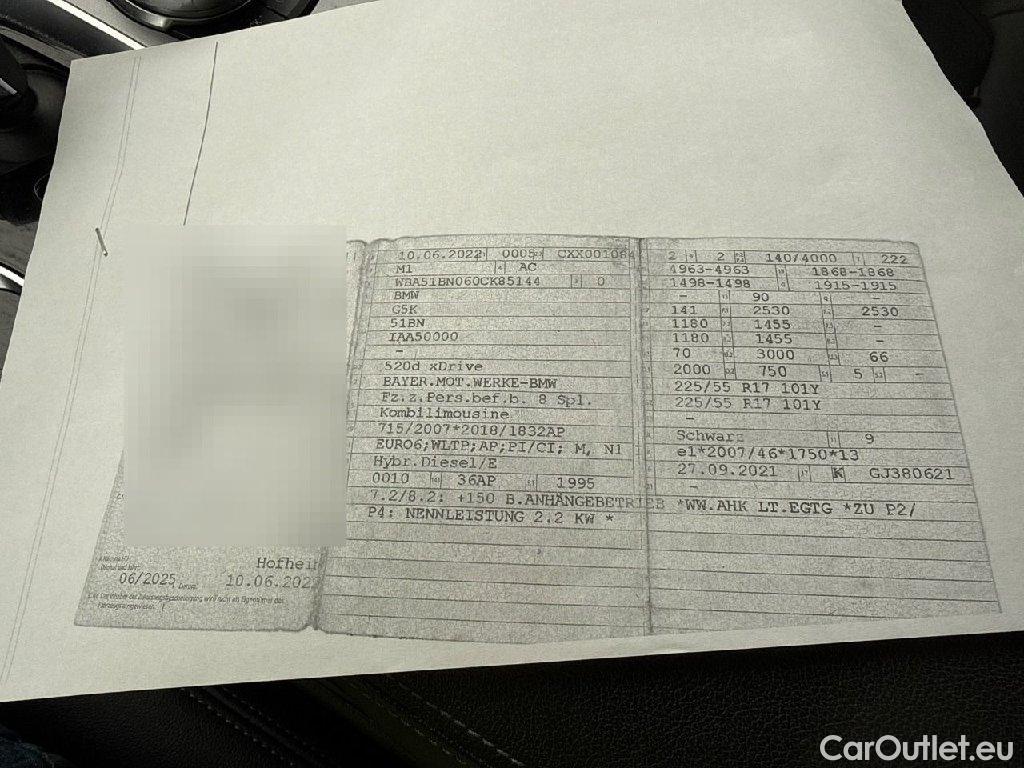 Hofheim
06/2025 10.06.2022
10.06.2022 0005 CXX001084
M1 AC
WBA51BN060CK85144 0
BMW
G5K
51BN
IAA50000
-
520d xDrive
BAYER.MOT.WERKE-BMW
Fz.z.Pers.bef.b. 8 Spl.
Kombilimousine
715/2007*2018/1832AP
EURO6;WLTP;AP;PI/CI; M, N1
Hybr.Diesel/E
0010 36AP 1995
7.2/8.2: +150 B.ANHÄNGEBETRIEB *WW.AHK LT.EGTG *ZU P2/
P4: NENNLEISTUNG 2,2 KW *
2 2 140/4000 222
4963-4963 1868-1868
1498-1498 1915-1915
- 90 -
141 2530 2530
1180 1455 -
1180 1455 -
70 3000 66
2000 750 5 -
225/55 R17 101Y
225/55 R17 101Y
-
Schwarz 9
e1*2007/46*1750*13
27.09.2021 K GJ380621
CarOutlet.eu